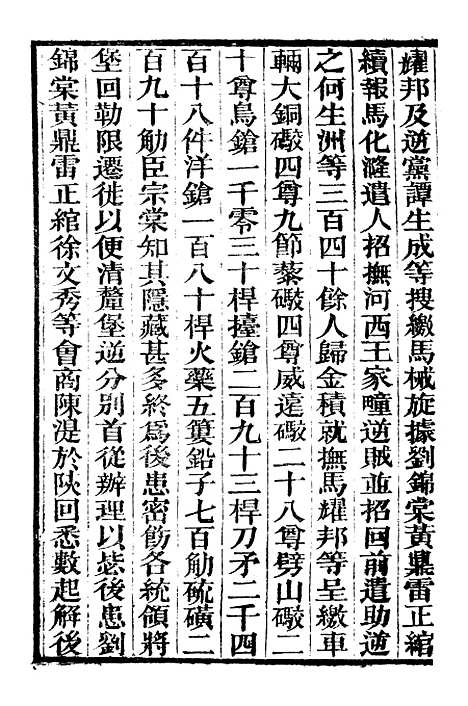 耀邦及逆黨譚生成等搜繳馬械旋據劉錦棠黃鼎雷正綰
續報馬化漋遣人招撫河西王家疃逆賊並招回前遣助逆
之何生洲等三百四十餘人歸金積就撫馬耀邦等呈繳車
輛大銅礮四尊九節藜礮四尊威遠礮二十八尊劈山礮二
十尊鳥鎗一千零三十桿擡鎗二百九十三桿刀矛二千四
百十八件洋鎗一百八十桿火藥五簍鉛子七百觔硫磺二
百九十觔臣宗棠知其隱藏甚多終爲後患密飭各統領將
堡回勒限遷徙以便清釐堡逆分別首從辦理以毖後患劉
錦棠黃鼎雷正綰徐文秀等會商陳湜於陝回悉數起解後